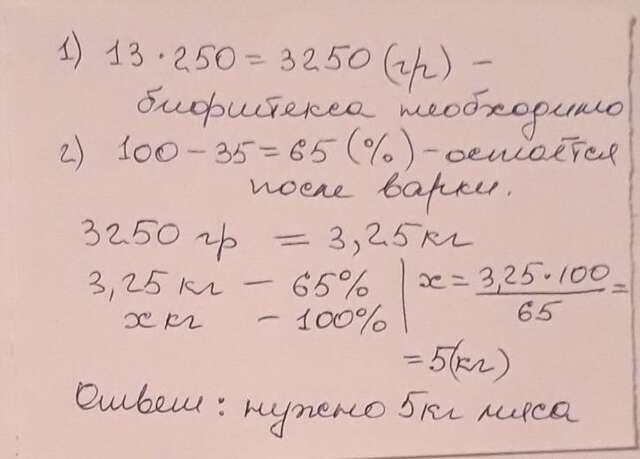 1) 13 · 250 = 3250 (гр) -
бифштекса необходимо
2) 100 - 35 = 65 (%) - остаётся
после варки.
3250 гр = 3,25 кг
3,25 кг - 65% | x = 3,25 · 100 / 65 =
x кг - 100%
= 5 (кг)
Ответ: нужно 5 кг мяса